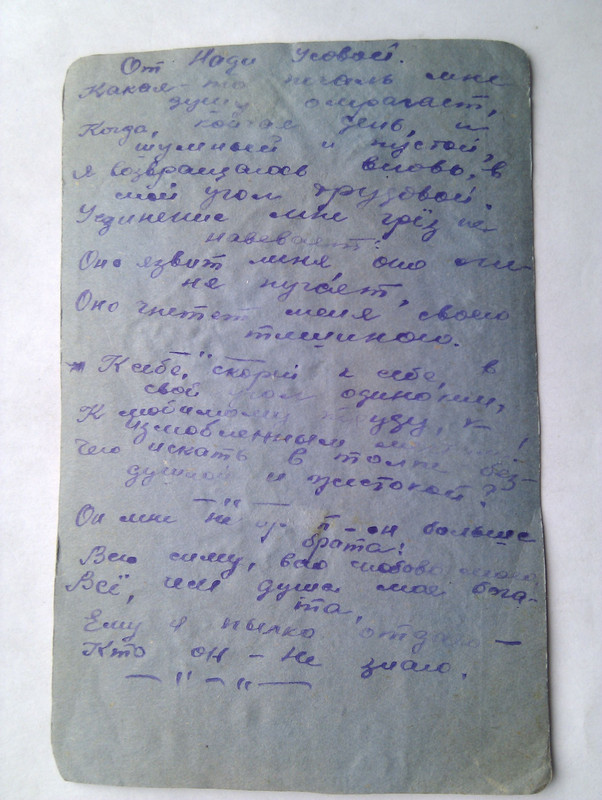 От Нади Усовой.
Какая-то печаль мне
душу омрачает,
Когда, кончая день, и
шумный и пустой,
я возвращаюсь вновь, в
мой угол трудовой.
Уединение мне грёз не
навевает:
Оно язвит меня оно ме-
ня пугает,
Оно гнетет меня своею
тишиною.
К себе, скорей к себе, в
свой угол одинокий,
К любимому труду, к
излюбленным
Чего искать в толпе без-
душной и жестокой?
— " —
Он мне не друг - он больше
брата!
Всю силу, всю любовь
Всё, чем душа моя бога-
та,
Ему я пылко отдаю —
Кто он - не знаю.
— " — " —